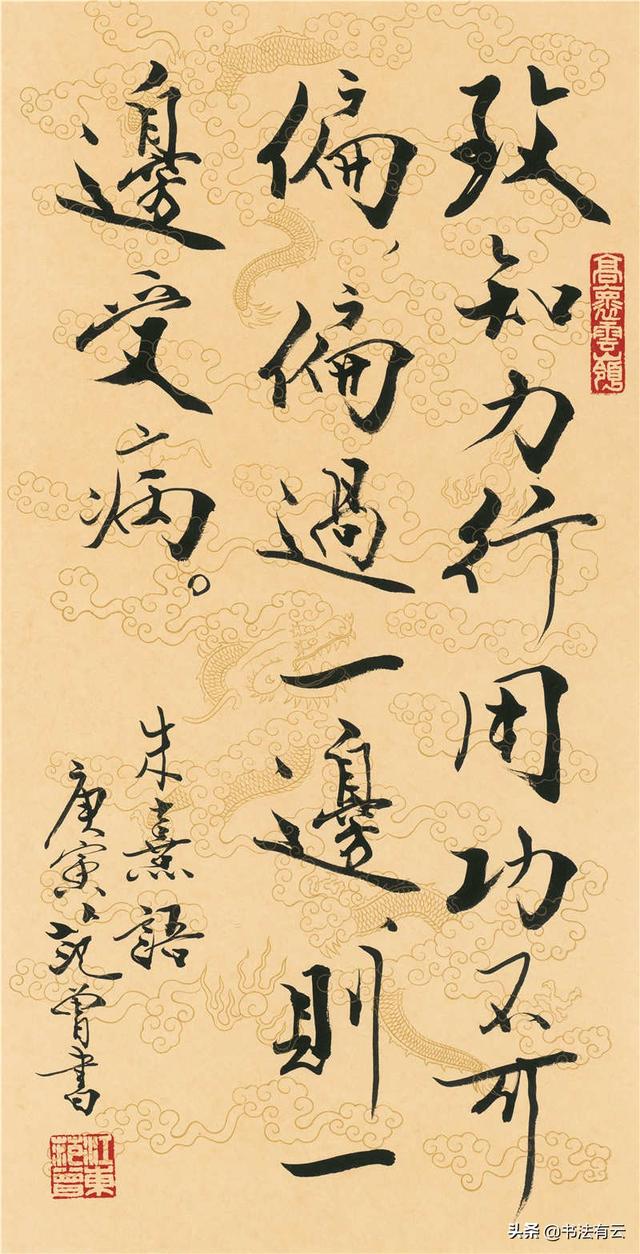 致知力行用功不可
偏、偏過一邊、則一
邊受病。
朱熹語
庚寅、范曾書
江東范曾
头条 @书法有云